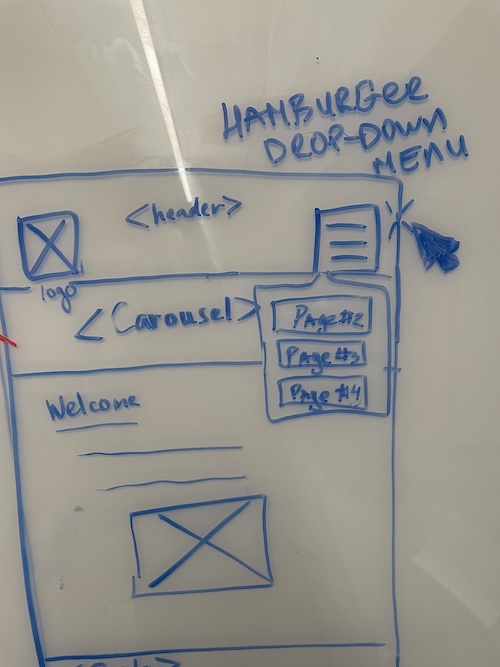 HAMBURGER
DROP-DOWN
MENU
<header>
logo
<Carousel>
Page #2
Page #3
Page #4
Welcome